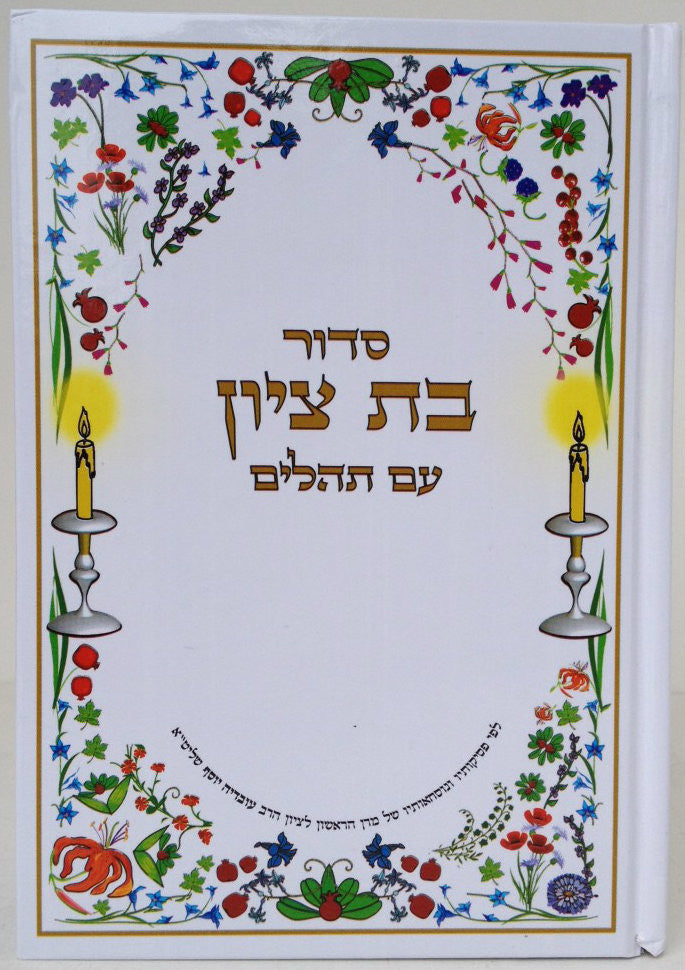 סדור
בת ציון
עם תהלים
לפי פסיקותיו ונוסחאותיו של מרן הראשון לציון הרב עובדיה יוסף שליט"א